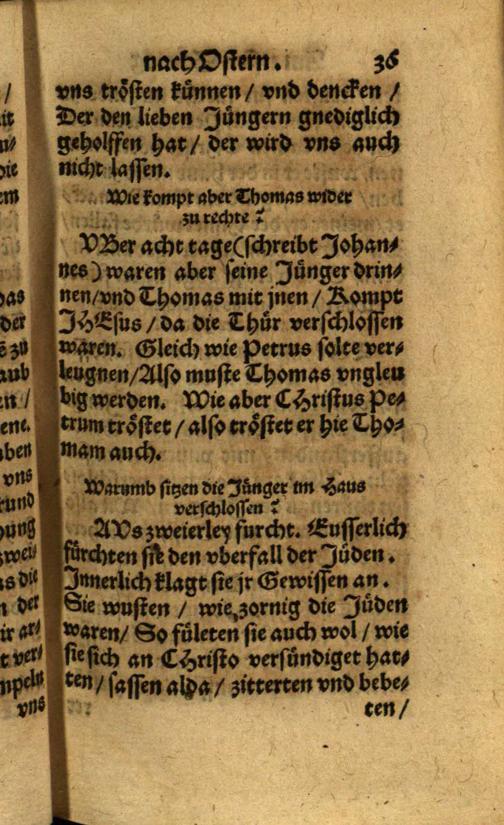 nach Ostern. 36
vns trösten künnen / vnd dencken /
Der den lieben Jüngern gnediglich
geholffen hat / der wird vns auch
nicht lassen.
Wie kompt aber Thomas wider
zu rechte?
VBer acht tage (schreibt Johan⸗
nes) waren aber seine Jünger drin⸗
nen / vnd Thomas mit jnen / Kompt
JHEsus / da die Thür verschlossen
waren. Gleich wie Petrus solte ver⸗
leugnen / Also muste Thomas vngleu
big werden. Wie aber CHristus Pe⸗
trum tröstet / also tröstet er hie Tho⸗
mam auch.
Warumb sitzen die Jünger im Haus
verschlossen?
AVs zweierley furcht. Eusserlich
fürchten sie den vberfall der Jüden.
Jnnerlich klagt sie jr Gewissen an.
Sie wusten / wie zornig die Jüden
waren / So fületen sie auch wol / wie
sie sich an CHristo versündiget hat⸗
ten / sassen alda / zitterten vnd bebe⸗
ten /